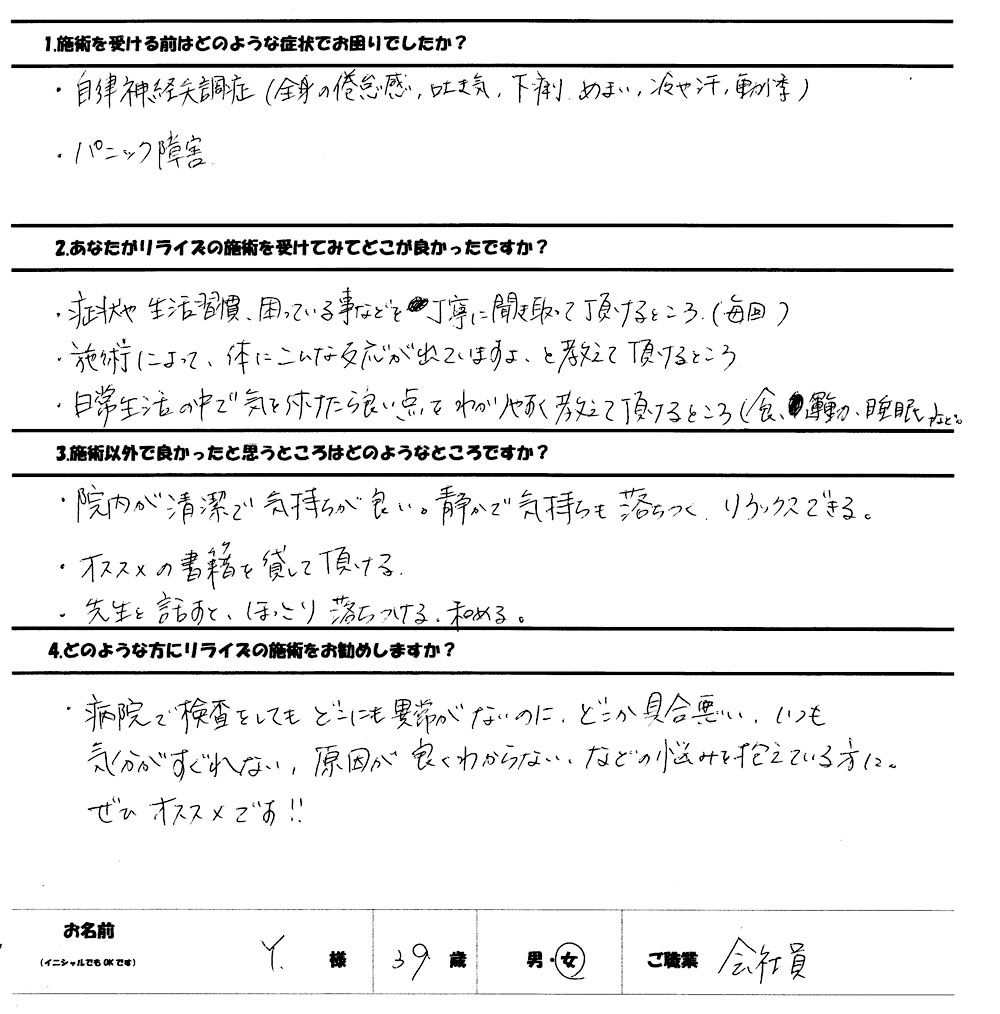 1.施術を受ける前はどのような症状でお困りでしたか？
・自律神経失調症（全身の倦怠感，吐き気，下痢．めまい，冷や汗，動悸）
・パニック障害．
2.あなたがリライズの施術を受けてみてどこが良かったですか？
・症状や生活習慣、困っている事などを丁寧に聞き取って頂けるところ．（毎回）
・施術によって、体にこんな反応が出ていますよ、と教えて頂けるところ
・日常生活の中で気を付けたら良い点をわかりやすく教えて頂けるところ（食、運動、睡眠など。
3.施術以外で良かったと思うところはどのようなところですか？
・院内が清潔で気持ちが良い。静かで気持ちも落ちつく．リラックスできる。
・オススメの書籍を貸して頂ける．
・先生と話すと、ほっこり落ちつける、和める。
4.どのような方にリライズの施術をお勧めしますか？
・病院で検査をしてもどこにも異常がないのに、どこか具合悪い、いつも
気分がすぐれない，原因が良くわからない、などの悩みを抱えている方に。
ぜひオススメです!!
お名前 Y. 様 39 歳 男・女 ご職業 会社員
（イニシャルでもOKです）